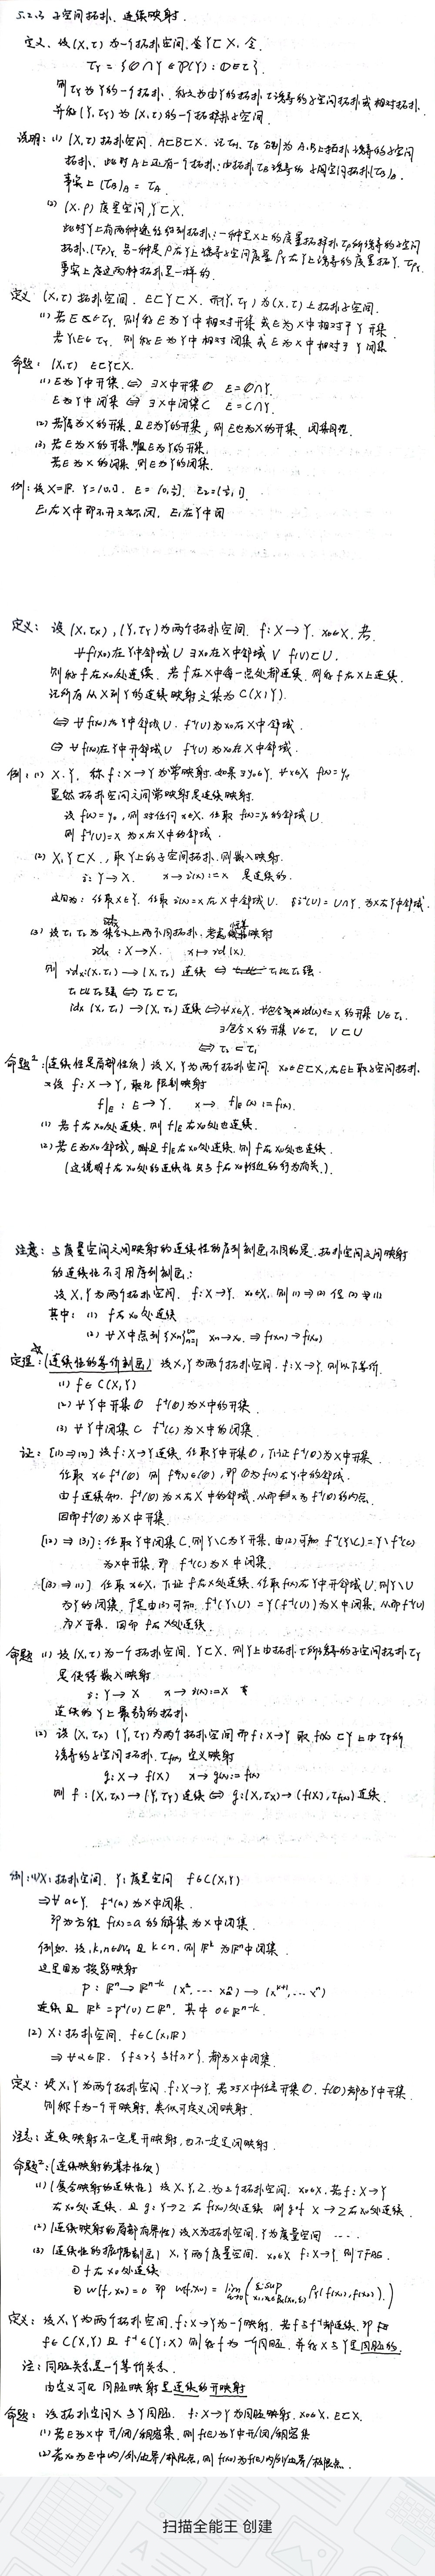 5.2.3 子空间拓扑、连续映射.
定义、设(X,τ)为一个拓扑空间.若Y⊂X,令.
τ_Y = {O∩Y∈P(Y): O∈τ}.
则τ_Y为Y的一个拓扑.称之为由Y的拓扑τ诱导的子空间拓扑或相对拓扑.
并称(Y,τ_Y)为(X,τ)的一个拓扑子空间.
说明:(1) (X,τ)拓扑空间.A⊂B⊂X.记τ_A,τ_B分别为A,B上拓扑τ诱导的子空间
拓扑.此时A上还有一个拓扑:由拓扑τ_B诱导的子空间拓扑(τ_B)_A.
事实上(τ_B)_A = τ_A.
(2) (X,ρ)度量空间,Y⊂X.
此时Y上有两种途径给到拓扑:一种是X上的度量拓扑τ_ρ所诱导的子空间
拓扑.(τ_ρ)_Y 另一种是ρ在Y上诱导子空间度量ρ_Y在Y上诱导的度量拓扑.τ_{ρ_Y}
事实上在这两种拓扑是一样的.
定义 (X,τ)拓扑空间.E⊂Y⊂X.而(Y,τ_Y)为(X,τ)上拓扑子空间.
(1) 若E∈τ_Y.则称E为Y中相对开集或E为X中相对于Y开集.
若Y\E∈τ_Y 则称E为Y中相对闭集或E为X中相对于Y闭集
命题:(X,τ) E⊂Y⊂X.
(1) E为Y中开集 ⇔ ∃X中开集O E=O∩Y.
E为Y中闭集 ⇔ ∃X中闭集C E=C∩Y.
(2) 若Y为X的开集.且E为Y的开集,则E也为X的开集.闭集同理.
(3) 若E为X的开集.则E为Y的开集.
若E为X的闭集.则E为Y的闭集.
例:设X=R. Y=(0,1). E₁=(0,½]. E₂=(½,1).
E₁在X中即不开又不闭.E₁在Y中闭
定义: 设(X,τ_X),(Y,τ_Y)为两个拓扑空间. f:X→Y. x₀∈X.若
∀f(x₀)在Y中邻域U ∃x₀在X中邻域V f(V)⊂U.
则称f在x₀处连续.若f在X中每一点处都连续.则称f在X上连续.
记所有从X到Y的连续映射之集为C(X,Y).
⇔ ∀f(x₀)在Y中邻域U. f⁻¹(U)为x₀在X中邻域.
⇔ ∀f(x₀)在Y中开邻域U f⁻¹(U)为x₀在X中邻域.
例:(1) X,Y. 称f:X→Y为常映射.如果∃y₀∈Y. ∀x∈X, f(x)=y₀
显然拓扑空间之间常映射是连续映射.
设f(x)=y₀,则对任何x∈X.任取f(x)=y₀的邻域U
则f⁻¹(U)=X为x在X中的邻域.
(2) X,Y⊂X.,取Y上的子空间拓扑.则嵌入映射.
i:Y→X. x→i(x):=x 是连续的.
这因为:任取x∈Y.任取i(x)=x在X中邻域U. i⁻¹(U)=U∩Y.为x在Y中邻域.
(3) 设τ₁ τ₂为集合X上两不同拓扑.考虑恒等映射
id_X:X→X. x↦id(x).
则 id_X:(X,τ₁)→(X,τ₂)连续 ⇔ τ₁比τ₂强.
τ₁比τ₂强 ⇔ τ₂⊂τ₁
id_X (X,τ₁)→(X,τ₂)连续 ⇔ ∀x∈X. ∀包含id(x)=x的开集U∈τ₂.
∃包含x的开集V∈τ₁ V⊂U
⇔ τ₂⊂τ₁
命题²:(连续性是局部性质)设X,Y为两个拓扑空间. x₀∈E⊂X,在E上取子空间拓扑.
又设f:X→Y.取其限制映射
f|_E:E→Y. x→f|_E(x):=f(x).
(1) 若f在x₀处连续.则f|_E在x₀处也连续.
(2) 若E为x₀邻域,且f|_E在x₀处连续.则f在x₀处也连续.
(这说明f在x₀处的连续性只与f在x₀附近的行为有关.).
注意: 与度量空间之间映射的连续性的序列刻画不同的是.拓扑空间之间映射
的连续性不可用序列刻画.:
设X,Y为两个拓扑空间. f:X→Y. x₀∈X.则(1)⇒(2)但(2)⇏(1)
其中: (1) f在x₀处连续
(2) ∀X中点列{xₙ}ₙ₌₁^∞ xₙ→x₀ ⇒ f(xₙ)→f(x₀)
定理:(连续性的等价刻画)设X,Y为两个拓扑空间. f:X→Y.则以下等价.
(1) f∈C(X,Y)
(2) ∀Y中开集O f⁻¹(O)为X中的开集.
(3) ∀Y中闭集C f⁻¹(C)为X中的闭集.
证:[(1)⇒(2)] 设f:X→Y连续.任取Y中开集O,下证f⁻¹(O)为X中开集.
任取x∈f⁻¹(O) 则f(x)∈O,即O为f(x)在Y中的邻域.
由f连续知. f⁻¹(O)为x在X中的邻域.从而x为f⁻¹(O)的内点.
因而f⁻¹(O)为X中开集.
[(2)⇒(3)]:任取Y中闭集C.则Y\C为Y开集.由(2)可知f⁻¹(Y\C)=Y\f⁻¹(C)
为X中开集.即f⁻¹(C)为X中闭集.
[(3)⇒(1)] 任取x∈X.下证f在x处连续.任取f(x)在Y中开邻域U.则Y\U
为Y的闭集.于是由(3)可知. f⁻¹(Y\U)=Y\(f⁻¹(U))为X中闭集.从而f⁻¹(U)
为X开集.因而f在x处连续.
命题 (1) 设(X,τ)为一个拓扑空间. Y⊂X.则Y上由拓扑τ所诱导的子空间拓扑τ_Y
是使得嵌入映射
i:Y→X x→i(x):=x
连续的Y上最弱的拓扑.
(2) 设(X,τ_X) (Y,τ_Y)为两个拓扑空间而f:X→Y 取f(X)⊂Y上由τ_Y所
诱导的子空间拓扑.τ_{f(X)}定义映射
g:X→f(X) x→g(x):=f(x)
则 f:(X,τ_X)→(Y,τ_Y)连续 ⇔ g:(X,τ_X)→(f(X),τ_{f(X)})连续.
例:(1)X:拓扑空间. Y:度量空间 f∈C(X,Y)
⇒∀a∈Y. f⁻¹(a)为X中闭集.
即为方程f(x)=a的解集为X中闭集.
例如.设,k,n∈N,且k<n.则R^k为R^n中闭集.
这是因为投影映射
P:R^n→R^{n-k} (x¹,…xⁿ)→(x^{k+1},…xⁿ)
连续且R^k=P⁻¹(0)⊂R^n.其中0∈R^{n-k}.
(2) X:拓扑空间. f∈C(X,R)
⇒∀r∈R. {f≤r}与{f≥r}.都为X中闭集.
定义:设X,Y为两个拓扑空间.f:X→Y.若对X中任意开集O. f(O)都为Y中开集.
则称f为一个开映射.类似可定义闭映射.
注意:连续映射不一定是开映射,也不一定是闭映射.
命题²:(连续映射的基本性质)
(1) (复合映射的连续性)设X,Y,Z.为三个拓扑空间. x₀∈X.若f:X→Y
在x₀处连续.且g:Y→Z在f(x₀)处连续 则g∘f X→Z在x₀处连续.
(2) (连续映射的局部有界性)设X为拓扑空间.Y为度量空间 ……
(3) (连续性的振幅刻画)X,Y两个度量空间. x₀∈X f:X→Y.则TFAE.
① f在x₀处连续
② w(f,x₀)=0 即 w(f,x₀)=lim( sup ρ_Y(f(x₁),f(x₂)).)
定义:设X,Y为两个拓扑空间.f:X→Y为一个映射.若f与f⁻¹都连续.即
f∈C(X,Y)且f⁻¹∈(Y;X)则称f为一个同胚.并称X与Y是同胚的.
注:同胚关系是一个等价关系.
由定义可知 同胚映射是连续的开映射
命题:设拓扑空间X与Y同胚. f:X→Y为同胚映射. x₀∈X. E⊂X.
(1) 若E为X中开/闭/稠密集 则f(E)为Y中开/闭/稠密集
(2) 若x₀为E中内/外/边界/极限点,则f(x₀)为f(E)内/外/边界/极限点.
扫描全能王 创建